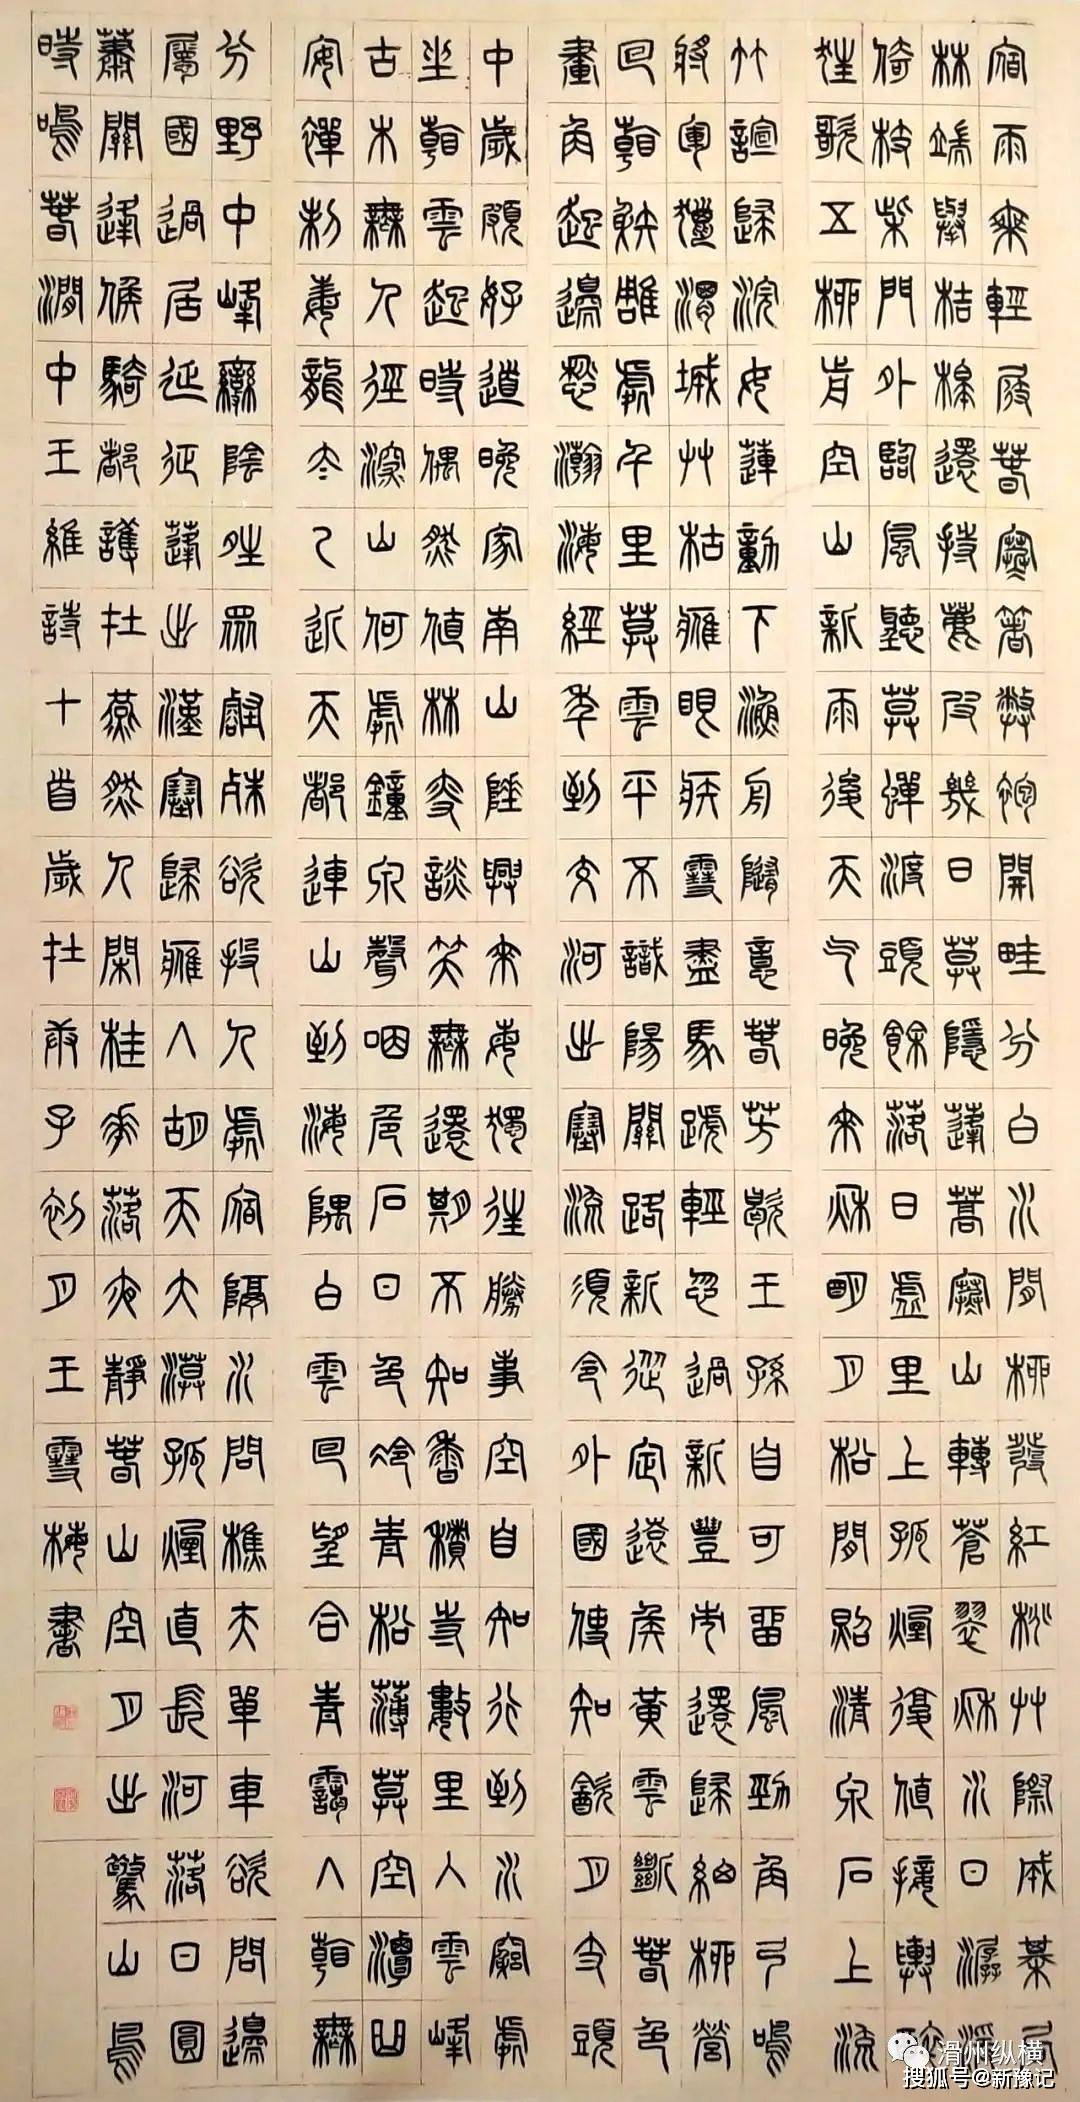 宿雨乘輕屐春寒著弊袍開畦分白水間柳發紅桃草際成棋局
林端舉桔槔還持鹿皮几日暮隱蓬蒿寒山轉蒼翠秋水日潺湲
倚杖柴門外臨風聽暮蟬渡頭餘落日墟里上孤煙復值接輿醉
狂歌五柳前空山新雨後天氣晚來秋明月松間照清泉石上流
竹諠歸浣女蓮動下漁舟隨意春芳歇王孫自可留風勁角弓鳴
將軍獵渭城草枯雁眼疾雪盡馬蹏輕忽過新豐市還歸細柳營
回看射雕處千里莫雲平不識陽關路新從定遠侯黃雲斷春色
畫角起邊愁瀚海經年到交河出塞流須令外國使知飲月支頭
中歲頗好道晚家南山陲興來每獨往勝事空自知行到水窮處
坐看雲起時偶然值林叟談笑無還期不知香積寺數里入雲峰
古木無人徑深山何處鐘泉聲咽危石日色冷青松薄莫空潭曲
安禪制毒龍太乙近天都連山到海隅白雲回望合青靄入看無
分野中峰變陰晴眾壑殊欲投人處宿隔水問樵夫單車欲問邊
屬國過居延征蓬出漢塞歸雁入胡天大漠孤煙直長河落日圓
蕭關逢候騎都護在燕然人閑桂花落夜靜春山空月出驚山鳥
時鳴春澗中王維詩十首歲在庚子初月王雪梅書
滑州纵横
搜狐号@新豫记